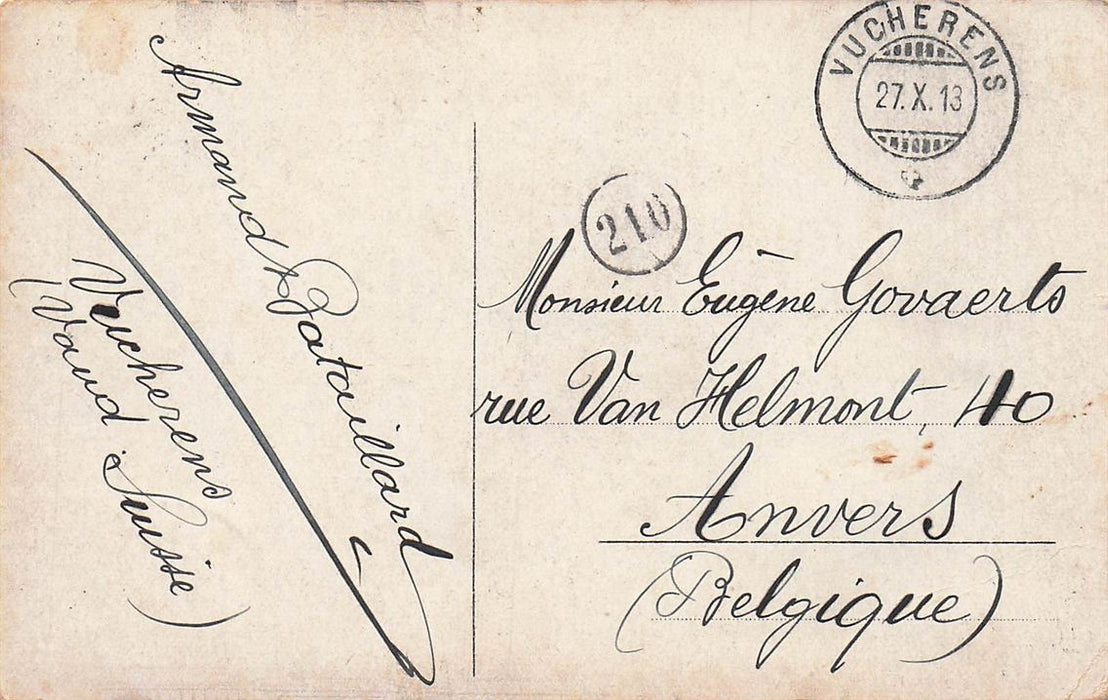 Armand Gataillard
Vucherens
(Vaud Suisse)
VUCHERENS
27.X.13
210
Monsieur Eugène Govaerts
rue Van Helmont, 40
Anvers
(Belgique)